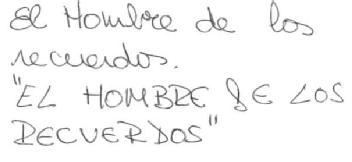 El Hombre de los
recuerdos.
"EL HOMBRE DE LOS
RECUERDOS"